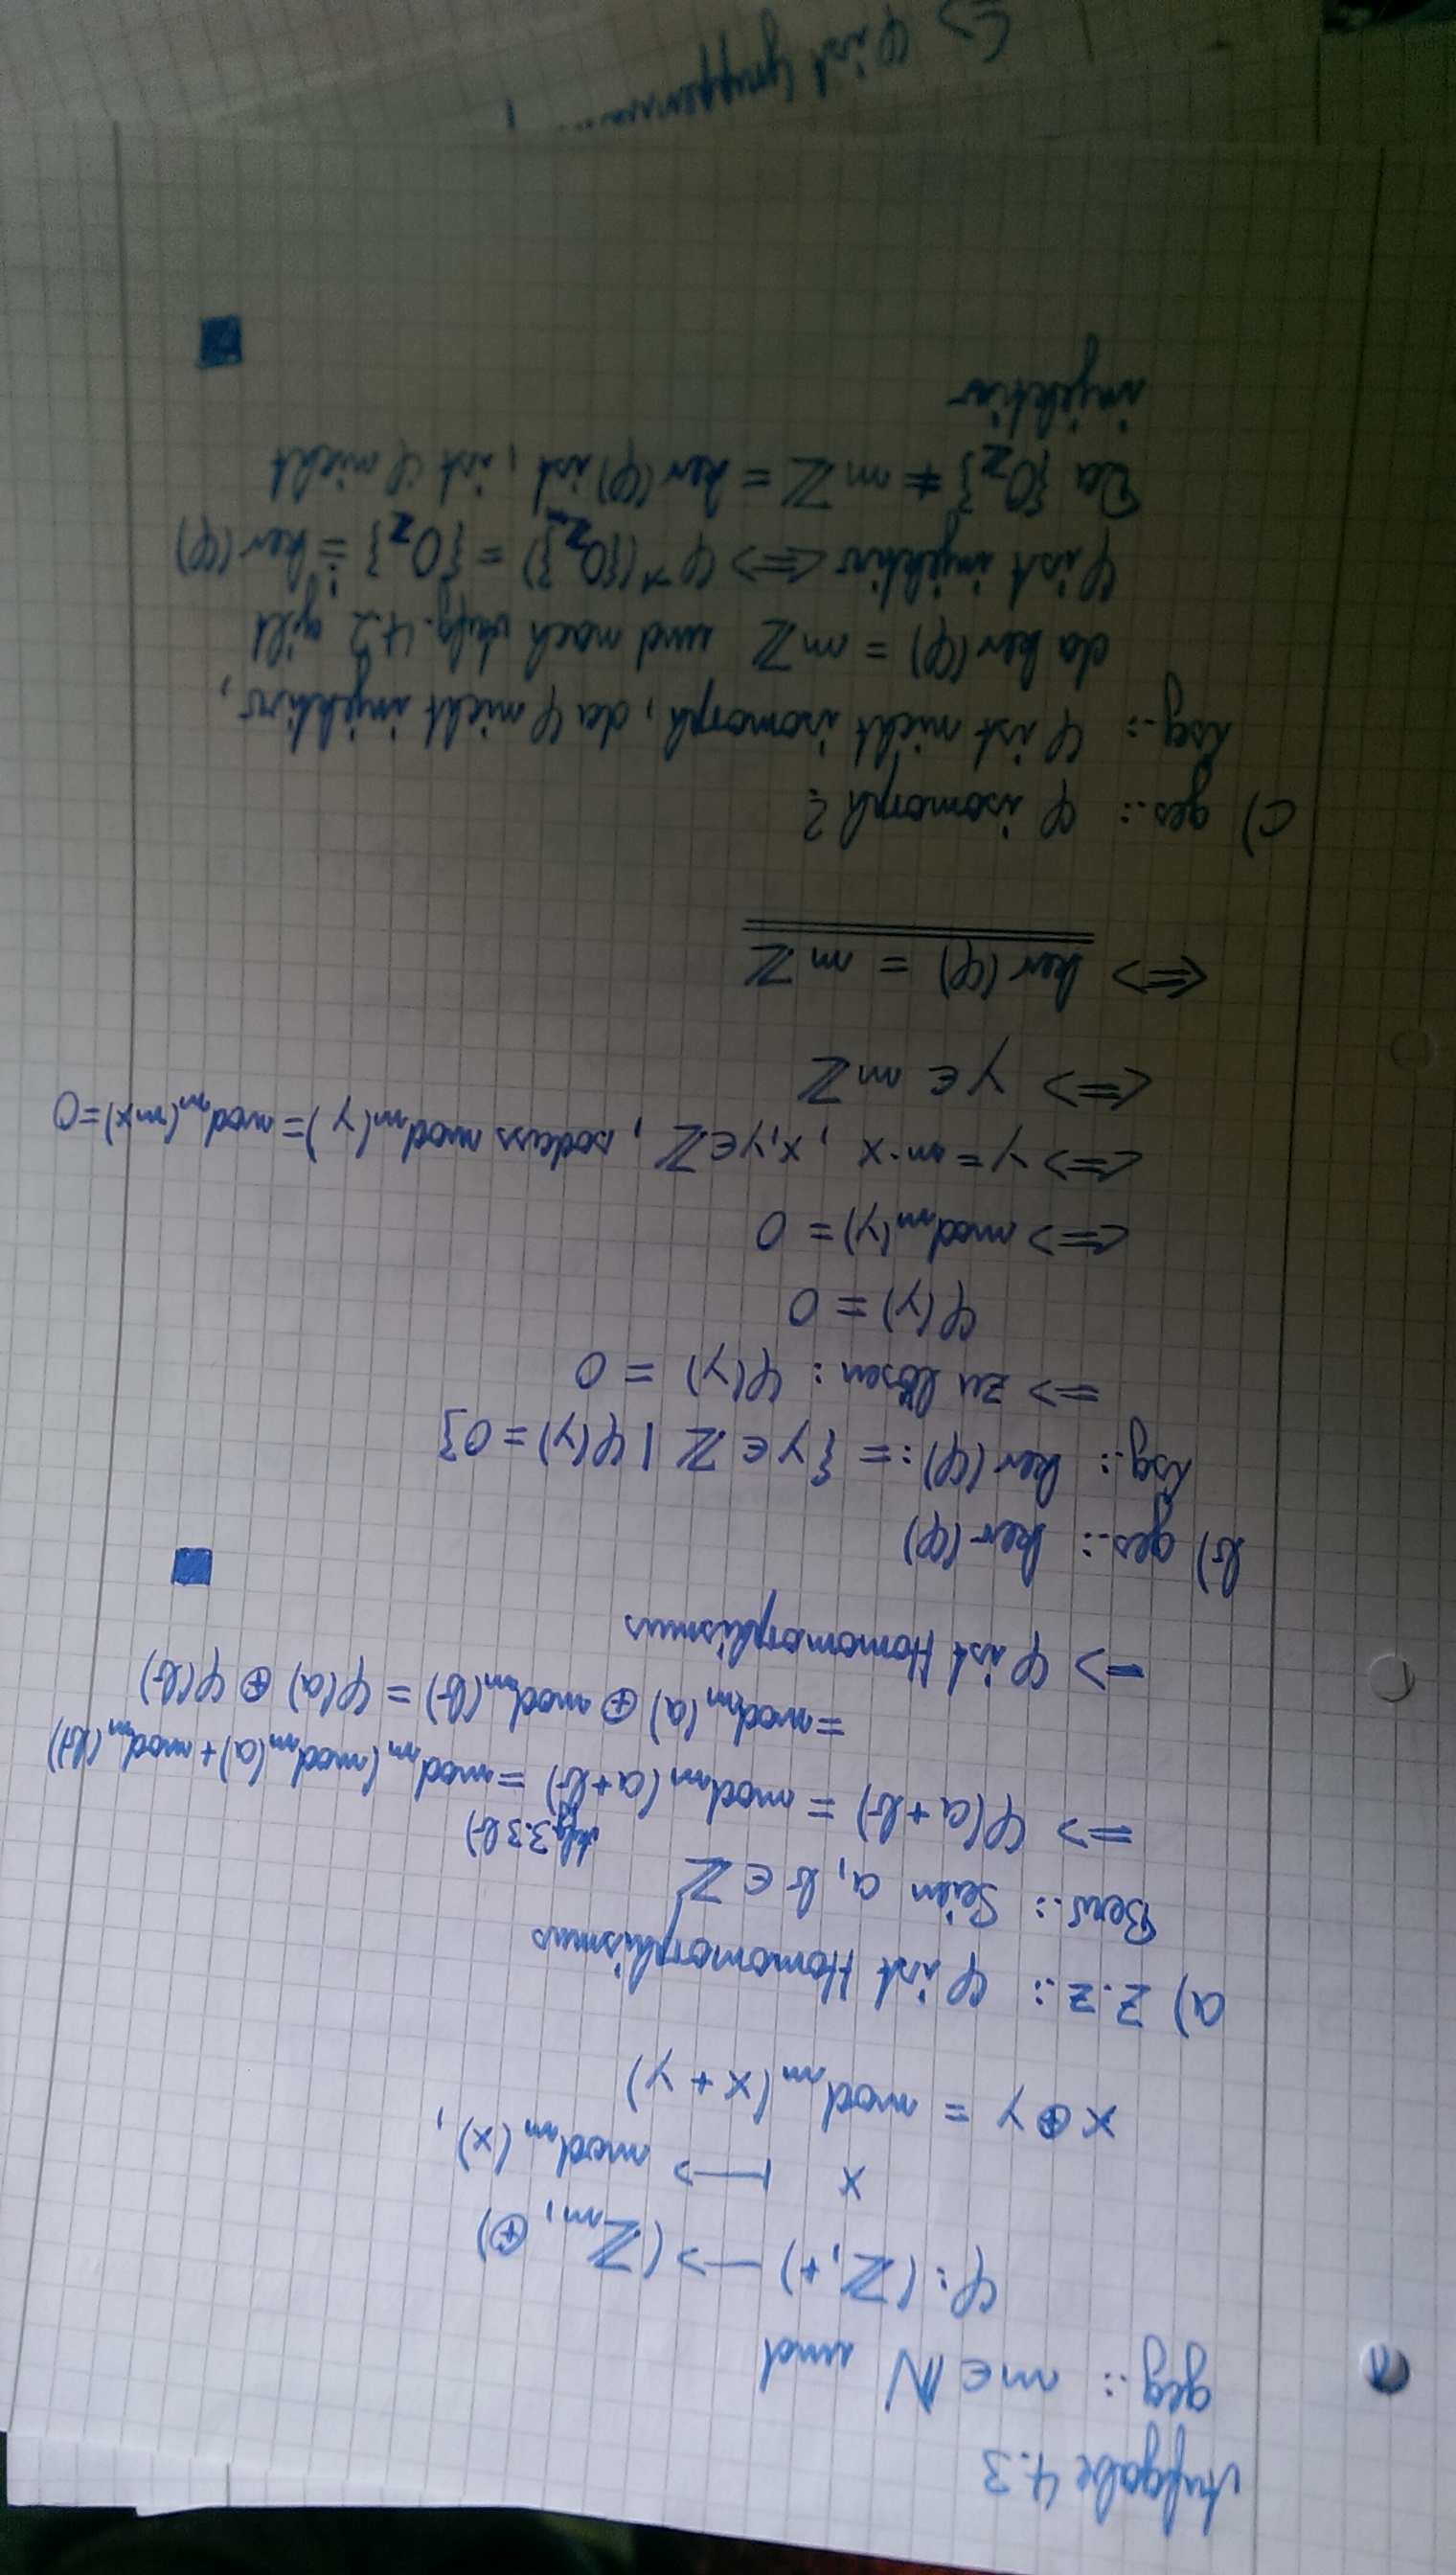 Aufgabe 4.3
geg.: m ∈ ℕ und
φ: (ℤ, +) —> (ℤₘ, ⊕)
x ⟼ modₘ(x),
x ⊕ y = modₘ(x + y)
a) z.z.: φ ist Homomorphismus
Bew.: Seien a, b ∈ ℤ
Aufg. 3.3 b)
=> φ(a+b) = modₘ(a+b) = modₘ(modₘ(a)+modₘ(b))
= modₘ(a) ⊕ modₘ(b) = φ(a) ⊕ φ(b)
=> φ ist Homomorphismus
b) ges.: ker(φ)
Lsg.: ker(φ) := {y ∈ ℤ | φ(y) = 0}
=> zu lösen: φ(y) = 0
φ(y) = 0
<=> modₘ(y) = 0
<=> y = m·x , x,y ∈ ℤ, sodass modₘ(y) = modₘ(mx) = 0
<=> y ∈ mℤ
<=> ker(φ) = mℤ
c) ges.: φ isomorph?
Lsg.: φ ist nicht isomorph, da φ nicht injektiv,
da ker(φ) = mℤ und nach Aufg. 4.2 gilt
φ ist injektiv <=> φ⁻¹({0}) = {0} = ker(φ)
Da {0} ≠ mℤ = ker(φ) ist, ist φ nicht
injektiv
=> φ ist Gruppen